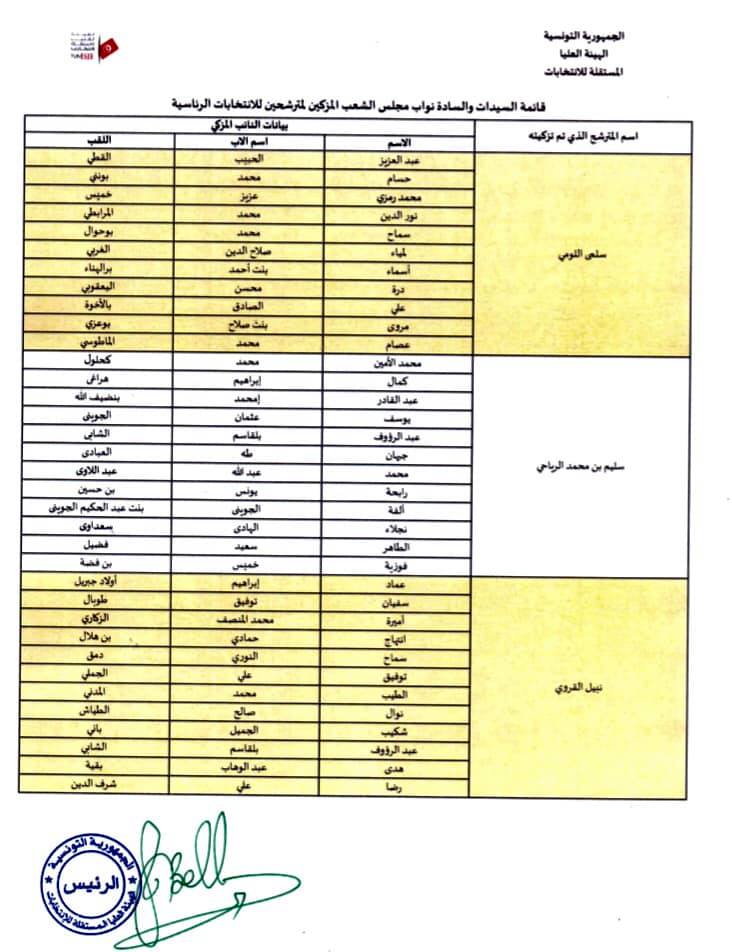 الجمهورية التونسية
الهيئة العليا
المستقلة للانتخابات
قائمة السيدات والسادة نواب مجلس الشعب المزكين لمترشحين للانتخابات الرئاسية
اسم المترشح الذي تم تزكيته
بيانات النائب المزكي
الاسم اسم الاب اللقب
سلمى اللومي
عبد العزيز الحبيب القطي
حسام محمد بونني
محمد رمزي عزيز خميس
نور الدين محمد المرابطي
سماح محمد بوحوال
لمياء صلاح الدين الغربي
أسماء بنت أحمد برالهناء
درة محسن اليعقوبي
علي الصادق بالأخوة
مروى بنت صلاح بوعزي
عصام محمد الماطوسي
سليم بن محمد الرياحي
محمد الأمين محمد كحلول
كمال إبراهيم هراغى
عبد القادر إمحمد بنضيف الله
يوسف عثمان الجوينى
عبد الرؤوف بلقاسم الشابى
جيهان طه العبادى
محمد عبد الله عبد اللاوى
رابحة يونس بن حسين
ألفة الجوينى بنت عبد الحكيم الجوينى
نجلاء الهادى سعداوى
الطاهر سعيد فضيل
فوزية خميس بن فضة
نبيل القروي
عماد إبراهيم أولاد جبريل
سفيان توفيق طوبال
أميرة محمد المنصف الزكاري
ابتهاج حمادي بن هلال
سماح النوري دمق
توفيق علي الجملي
الطيب محمد المدني
نوال صالح الطياش
شكيب الجميل باني
عبد الرؤوف بلقاسم الشابي
هدى عبد الوهاب بقية
رضا علي شرف الدين
الجمهورية التونسية
الرئيس
الهيئة العليا المستقلة للانتخابات